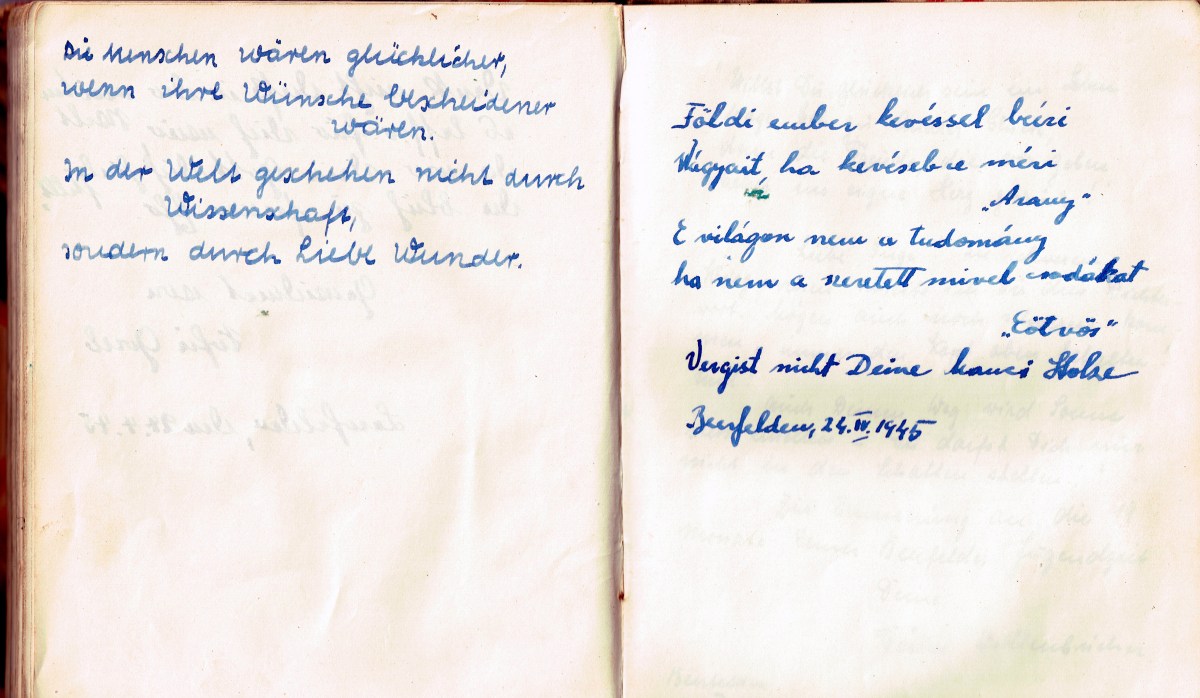 Die Menschen wären glücklicher,
wenn ihre Wünsche bescheidener
wären.
In der Welt geschehen nicht durch
Wissenschaft,
sondern durch Liebe Wunder.
Földi ember kevéssel beéri
Vágyait, ha kevésebre méri
"Arany"
E világon nem a tudomány
ha nem a szeretett mivel csodákat
"Eötvös"
Vergist nicht Deine
Beerfelden, 24.IV.1945